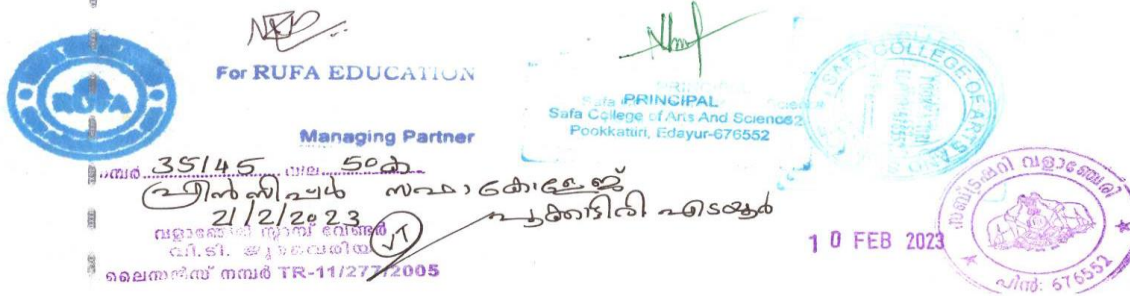 RUFA
For RUFA EDUCATION
Managing Partner
PRINCIPAL
Safa College of Arts And Science
Pookkattiri, Edayur-676552
SAFA COLLEGE OF ARTS AND
നമ്പർ 35/45 വില 50ക
പ്രിൻസിപ്പൽ സഫാ കോളേജ്
21/2/2023 പൂക്കാട്ടിരി എടയൂർ
വളാഞ്ചേരി സ്റ്റാമ്പ് വേണ്ടർ
വി.ടി.
VT
ലൈസൻസ് നമ്പർ TR-11/277/2005
10 FEB 2023
സബ്ട്രഷറി വളാഞ്ചേരി
പിൻ: 676552